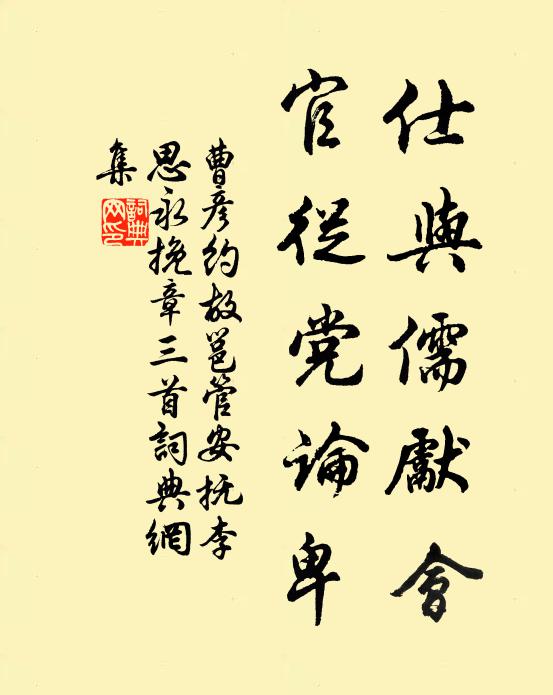 仕與儒獻會
官從党論卑
曹彦約故邕管安抚李
思永挽章三首詞典網
集
詞典網印